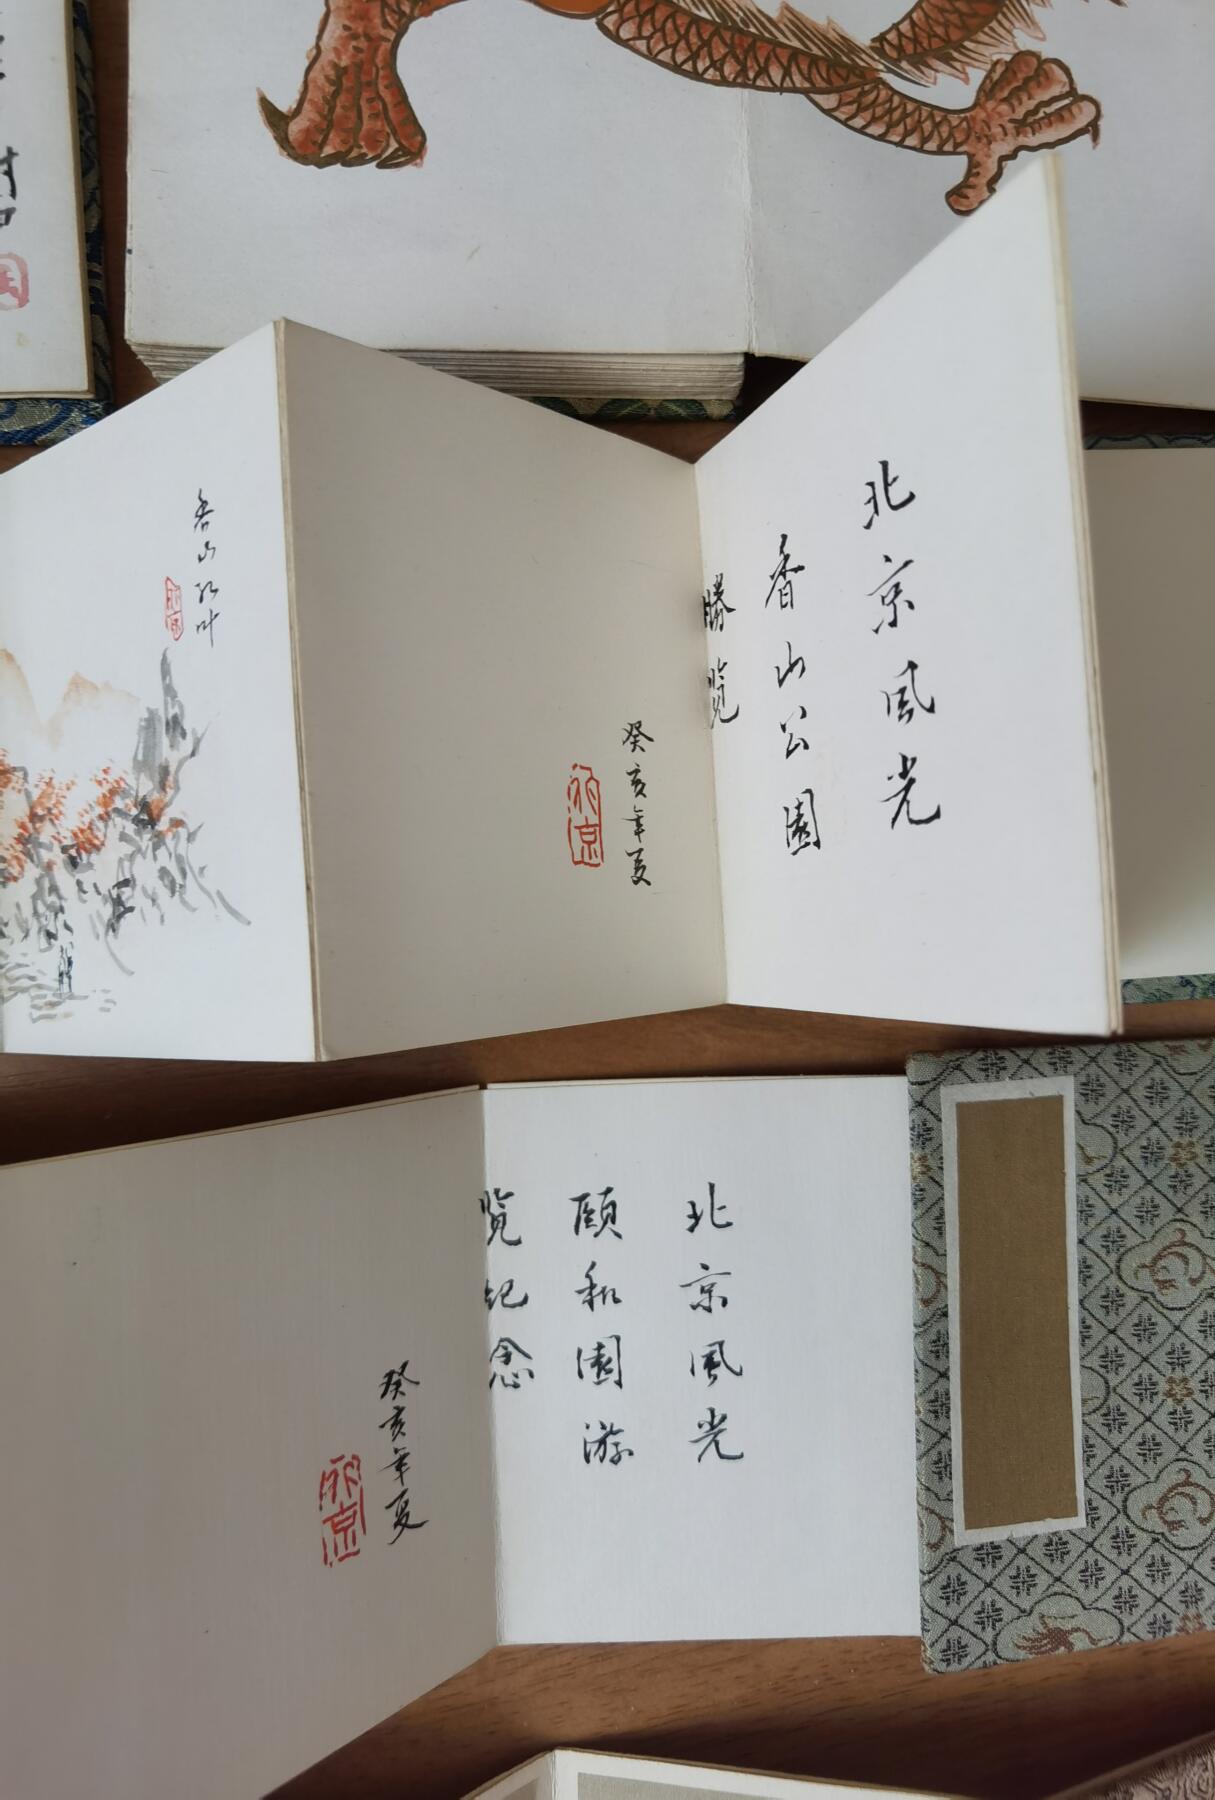 北京風光
香山公園
勝覧
癸亥年夏
香山红叶
北京風光
頤和園游
覧纪念
癸亥年夏